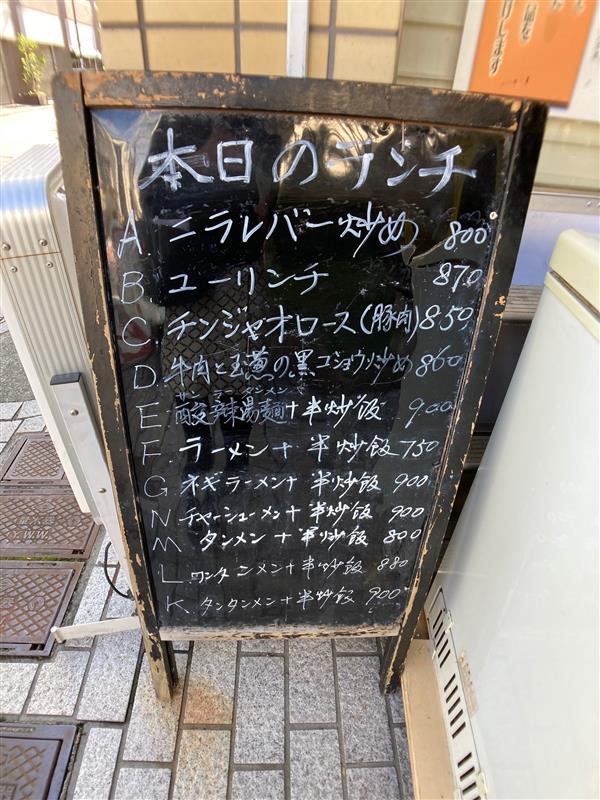 本日のランチ
A. ニラレバー炒め 800
B ユーリンチ 870
C. チンジャオロース(豚肉)850
D. 牛肉と玉葱の黒コショウソ炒め 860
サンラータンメン
E. 酸辣湯麺+半炒飯 900
F. ラーメン+半炒飯 750
G ネギラーメン+半炒飯 900
N チャーシューメン+半炒飯 900
M タンメン+半炒飯 800
L. ワンタンメン+半炒飯 880
K. タンタンメン+半炒飯 900